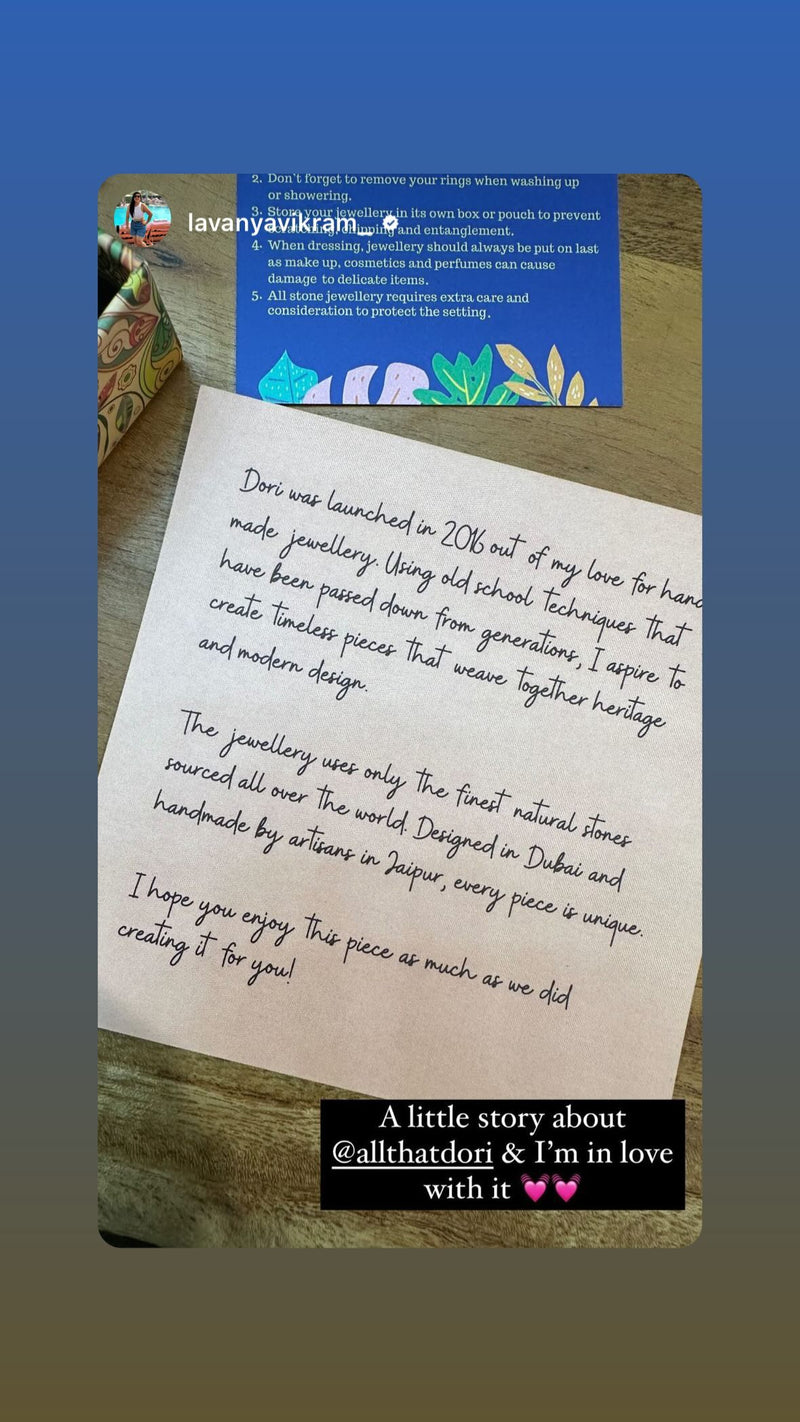 lavanyavikram_
2. Don't forget to remove your rings when washing up
or showering.
3. Store your jewellery in its own box or pouch to prevent
scratching, chipping and entanglement.
4. When dressing, jewellery should always be put on last
as make up, cosmetics and perfumes can cause
damage to delicate items.
5. All stone jewellery requires extra care and
consideration to protect the setting.
Dori was launched in 2016 out of my love for hand
made jewellery. Using old school techniques that
have been passed down from generations, I aspire to
create timeless pieces that weave together heritage
and modern design.
The jewellery uses only the finest natural stones
sourced all over the world. Designed in Dubai and
handmade by artisans in Jaipur, every piece is unique.
I hope you enjoy this piece as much as we did
creating it for you!
A little story about
@allthatdori & I'm in love
with it 💓💓